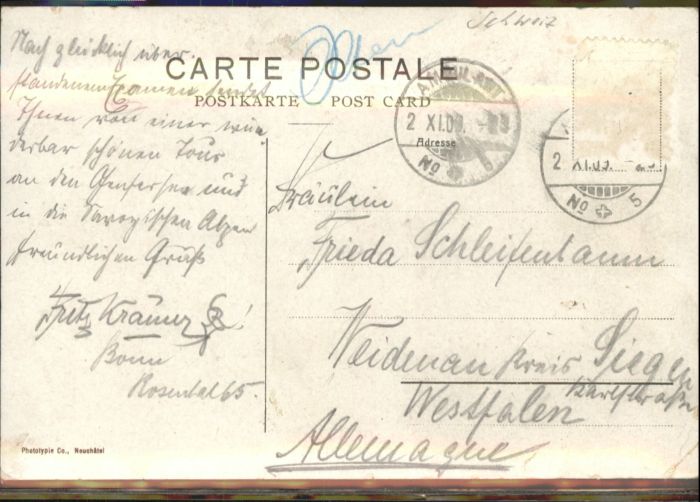 Schweiz
CARTE POSTALE
POSTKARTE POST CARD
Adresse
Nach glücklich über
standenem Examen sendet
Ihnen von einer wun
derbar schönen Tour
an den Genfersee und
in die Savoyischen Alpen
freundlichen Gruß
Fritz Krämer
Bonn
Rosental 65.
2 XI.09.
No 5
2 XI.09.
No 5
Fräulein
Frieda Schleifenbaum
Weidenau Kreis Siegen
Karlstraße
Westfalen
Allemagne
Phototypie Co., Neuchâtel